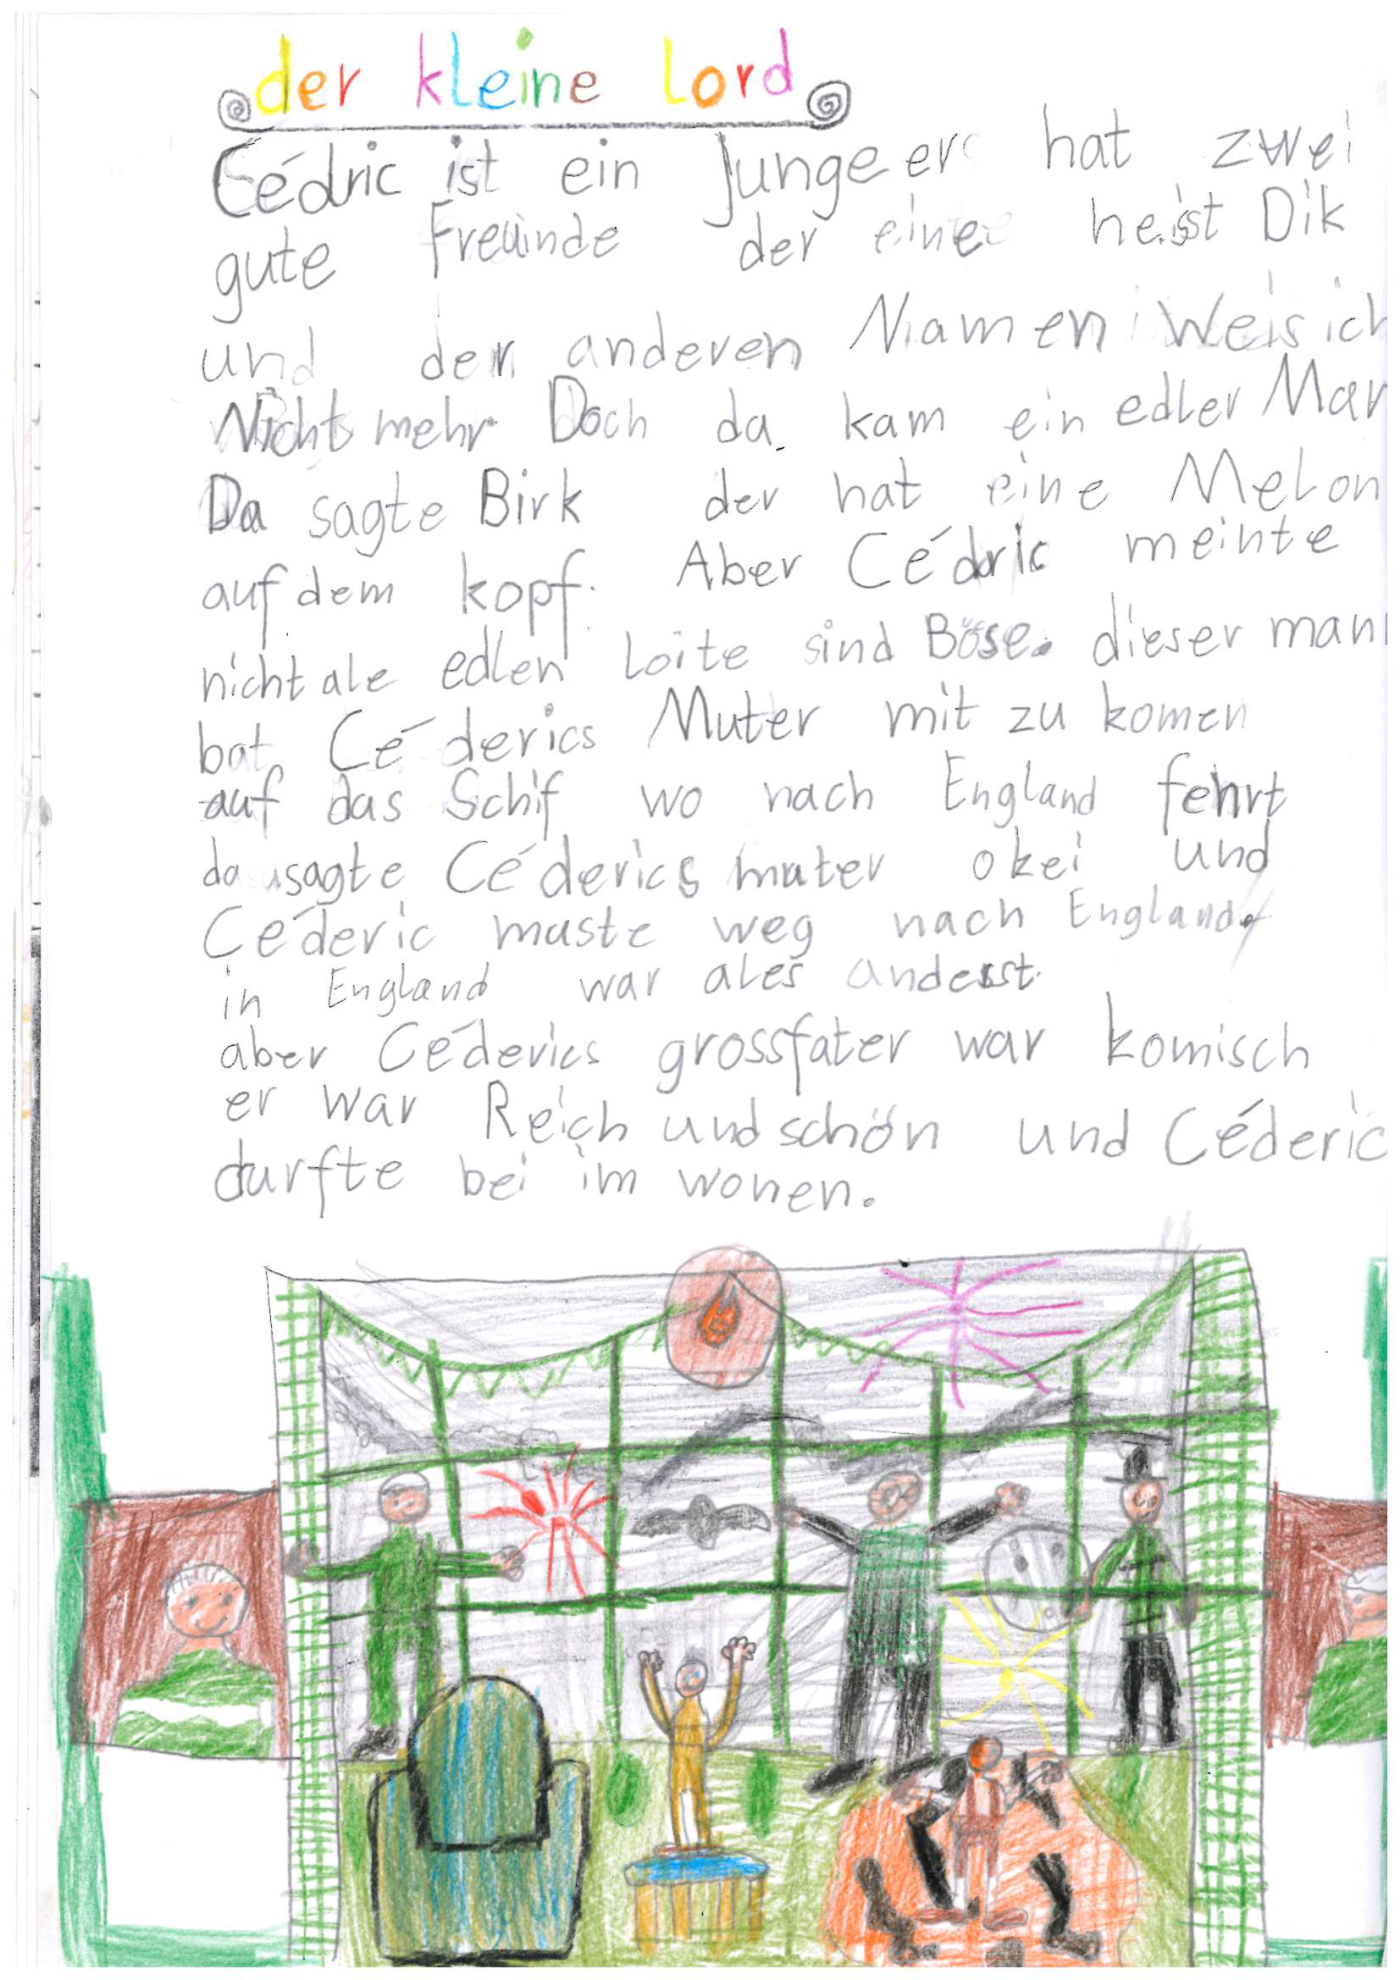 der kleine Lord
Cédric ist ein Junge er hat zwei
gute Freunde der eine heisst Dik
und den anderen Namen Weis ich
Nicht mehr Doch da kam ein edler Man
Da sagte Birk der hat eine Melon
auf dem kopf. Aber Cédric meinte
nicht ale edlen Loite sind Böse. dieser man
bat Céderics Muter mit zu komen
auf das Schif wo nach England fehrt
da sagte Céderics muter okei und
Céderic muste weg nach England.
in England war ales anderst.
aber Céderics grossfater war komisch
er war Reich und schön und Céderic
durfte bei im wonen.